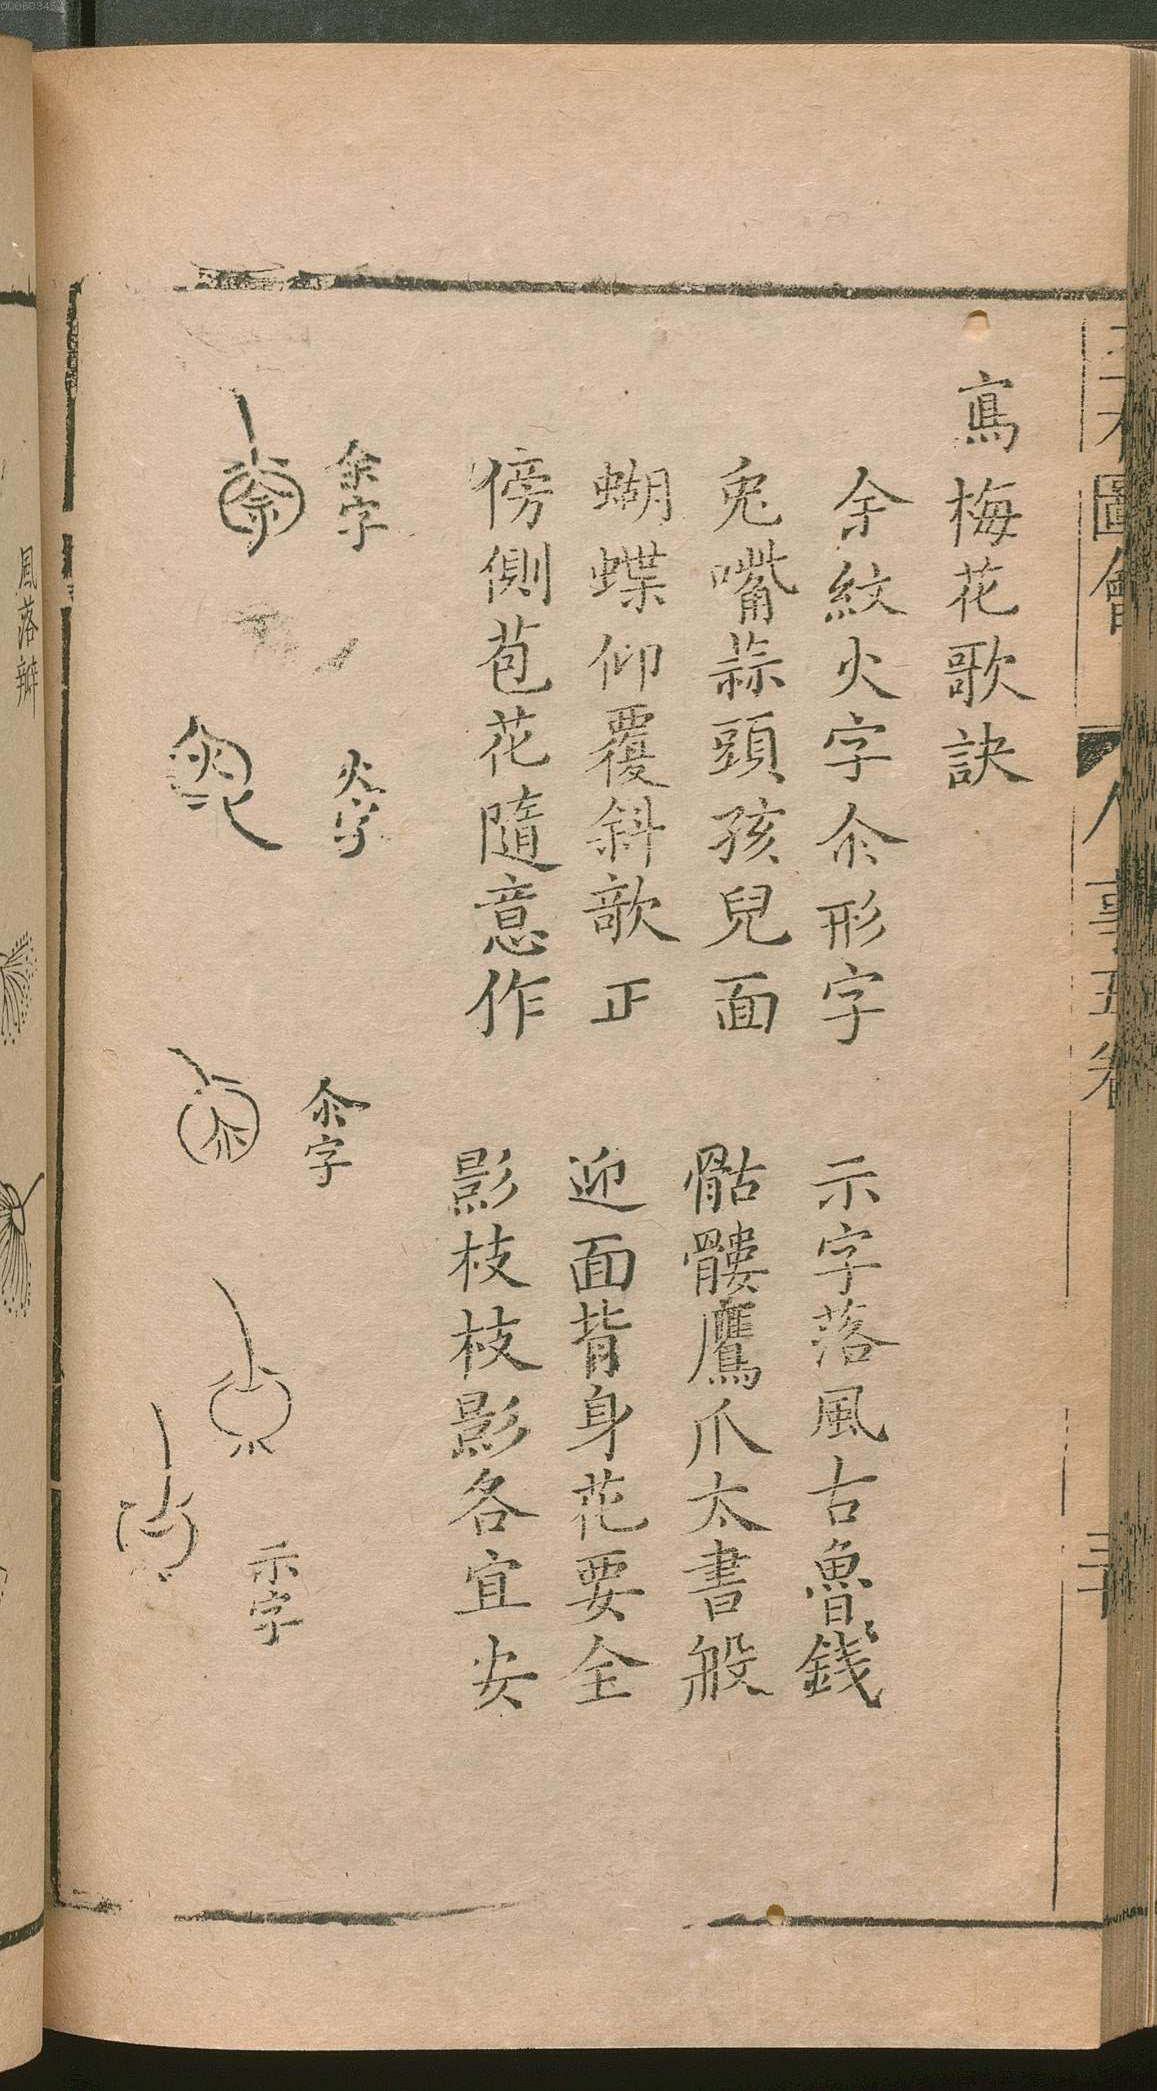 三才圖會
人事五卷
寫梅花歌訣
余紋火字尒形字 示字落風古魯錢
兔嘴蒜頭孩兒面 骷髏鷹爪太書般
蝴蝶仰覆斜歆正 迎面背身花要全
傍側苞花隨意作 影枝枝影各宜安
余字
火字
尒字
示字
風落瓣